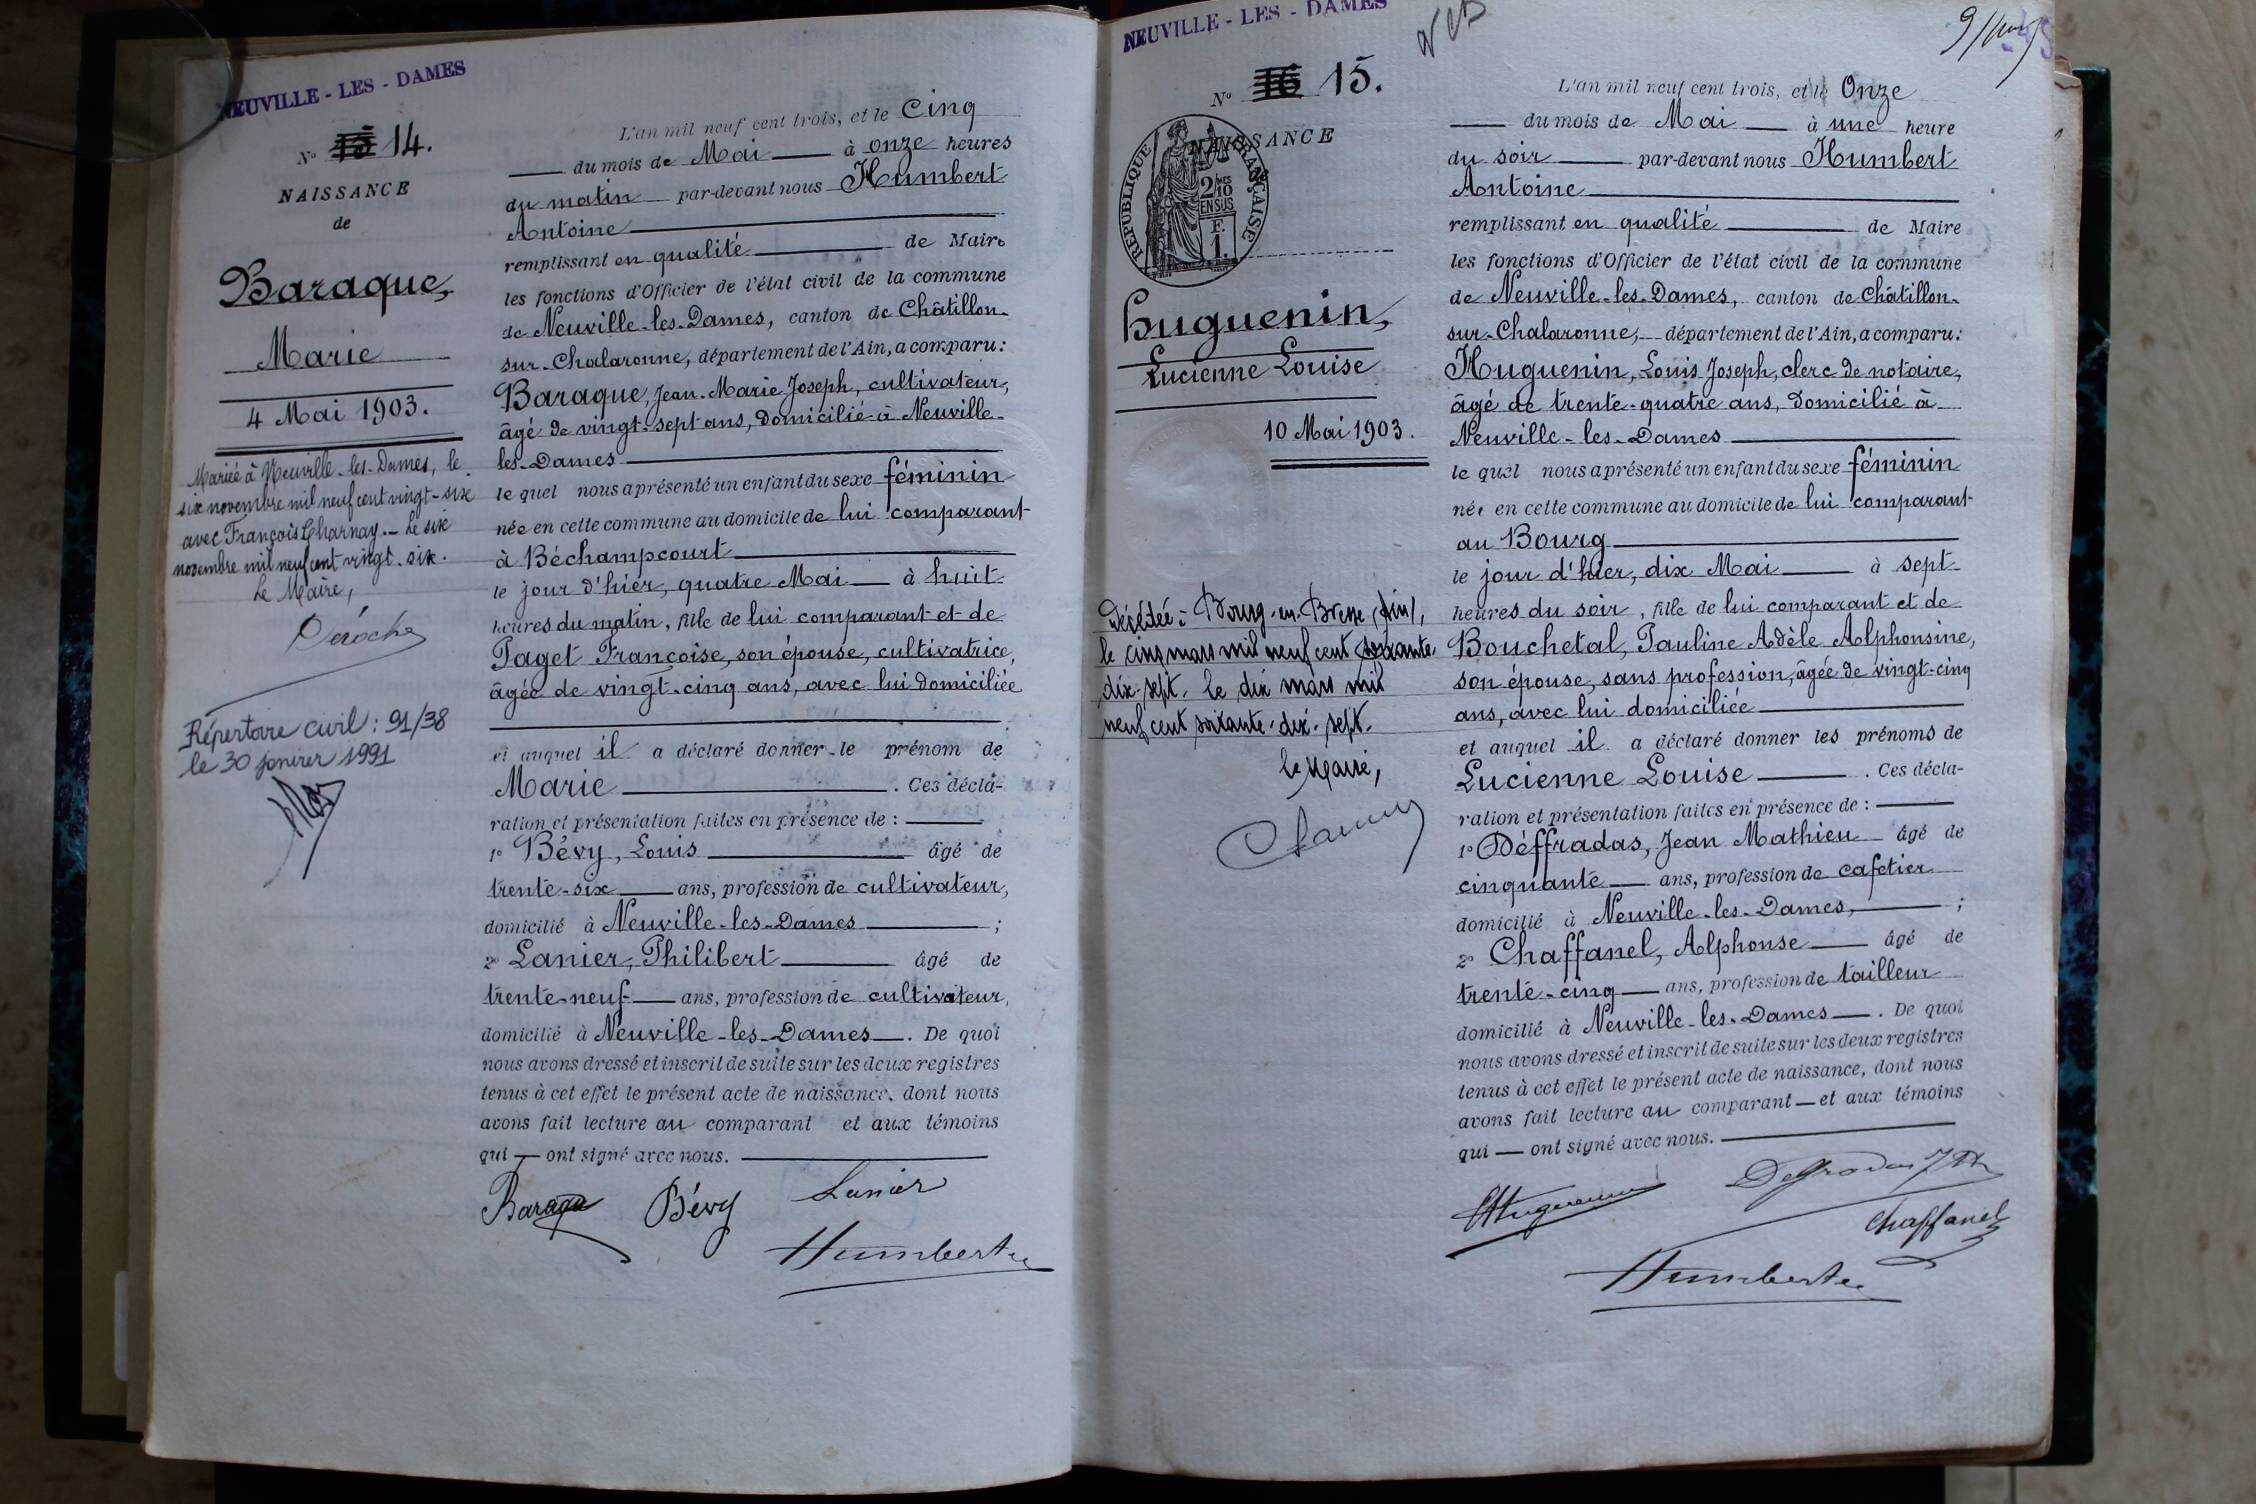 NEUVILLE - LES - DAMES
N° 15 14.
NAISSANCE
de
Baraque,
Marie
4 Mai 1903.
Mariée à Neuville-les-Dames, le
six novembre mil neuf cent vingt-six
avec François Charnay. - Le six
novembre mil neuf cent vingt-six.
Le Maire,
Répertoire civil : 91/38
le 30 janvier 1991
L'an mil neuf cent trois, et le Cinq
du mois de Mai à onze heures
du matin par-devant nous Humbert
Antoine
remplissant en qualité de Maire
les fonctions d'Officier de l'état civil de la commune
de Neuville-les-Dames, canton de Châtillon-
sur-Chalaronne, département de l'Ain, a comparu :
Baraque, Jean-Marie Joseph, cultivateur,
âgé de vingt-sept ans, domicilié à Neuville-
les-Dames
le quel nous a présenté un enfant du sexe féminin
née en cette commune au domicile de lui comparant
à Béchampcourt
le jour d'hier, quatre Mai à huit
heures du matin, fille de lui comparant et de
Paget Françoise, son épouse, cultivatrice,
âgée de vingt-cinq ans, avec lui domiciliée
et auquel il a déclaré donner le prénom de
Marie. Ces décla-
ration et présentation faites en présence de :
1° Bévy, Louis âgé de
trente-six ans, profession de cultivateur,
domicilié à Neuville-les-Dames ;
2° Lanier, Philibert âgé de
trente-neuf ans, profession de cultivateur,
domicilié à Neuville-les-Dames. De quoi
nous avons dressé et inscrit de suite sur les deux registres
tenus à cet effet le présent acte de naissance, dont nous
avons fait lecture au comparant et aux témoins
qui ont signé avec nous.
Baraque Bévy Lanier
Humbert
NEUVILLE - LES - DAMES
N° 16 15.
NAISSANCE
RÉPUBLIQUE FRANÇAISE
2/10
EN SUS
F.
1.
Huguenin,
Lucienne Louise
10 Mai 1903.
Décédée à Bourg-en-Bresse (Ain),
le cinq mars mil neuf cent soixante-
dix-sept. le dix mars mil
neuf cent soixante-dix-sept.
le Maire,
L'an mil neuf cent trois, et le Onze
du mois de Mai à une heure
du soir par-devant nous Humbert
Antoine
remplissant en qualité de Maire
les fonctions d'Officier de l'état civil de la commune
de Neuville-les-Dames, canton de Châtillon-
sur-Chalaronne, département de l'Ain, a comparu :
Huguenin, Louis Joseph, clerc de notaire,
âgé de trente-quatre ans, domicilié à
Neuville-les-Dames
le quel nous a présenté un enfant du sexe féminin
née en cette commune au domicile de lui comparant
au Bourg
le jour d'hier, dix Mai à sept
heures du soir, fille de lui comparant et de
Bouchetal, Pauline Adèle Alphonsine,
son épouse, sans profession, âgée de vingt-cinq
ans, avec lui domiciliée
et auquel il a déclaré donner les prénoms de
Lucienne Louise. Ces décla-
ration et présentation faites en présence de :
1° Déffradas, Jean Mathieu âgé de
cinquante ans, profession de cafetier
domicilié à Neuville-les-Dames, ;
2° Chaffanel, Alphonse âgé de
trente-cinq ans, profession de tailleur
domicilié à Neuville-les-Dames. De quoi
nous avons dressé et inscrit de suite sur les deux registres
tenus à cet effet le présent acte de naissance, dont nous
avons fait lecture au comparant et aux témoins
qui ont signé avec nous.
Huguenin Deffradas J M
Chaffanel
Humbert